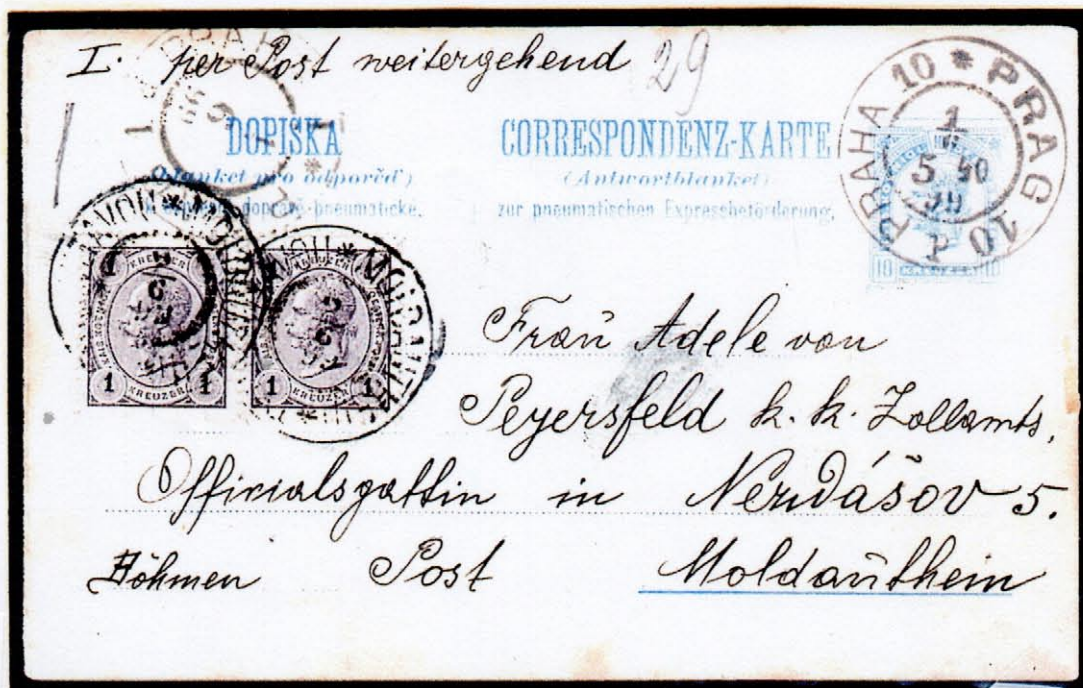 I. per Post weitergehend 29
DOPISKA
(blanket pro odpověď)
pneumatické.
CORRESPONDENZ-KARTE
(Antwortblanket)
zur pneumatischen Expressbeförderung.
PRAHA 10 * PRAG 10
1
5 50
10 KREUZER 10
1 KREUZER 1
1 KREUZER 1
Frau Adele von
Peyersfeld k. k. Zollamts,
Officialsgattin in Nerudášov 5.
Böhmen Post Moldauthein